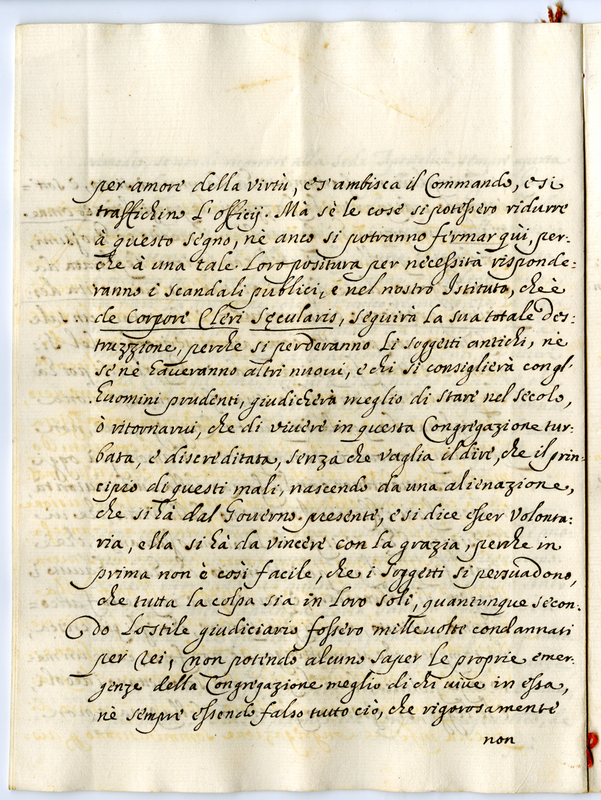 per amore della virtù, e s'ambisca il Commando, e si
traffichino L'officij. Mà sè le cose si potessero ridurre
à questo segno, nè anco si potranno fermar quì, per-
che à una tale Loro positura per necessità risponde-
ranno i scandali publici, e nel nostro Istituto, che è
de Corpore Cleri Sęcularis, seguirà la sua totale des-
truzzione, perche si perderanno Li soggetti antichi, nè
se nè haueranno altri nuoui, e chi si consiglierà con gl'
huomini prudenti, giudicherà meglio di stare nel secolo,
ò ritornarui, che di viuere in questa Congregazione tur-
bata, e discreditata, senza che vaglia il dire, che il prin-
cipio di questi mali, nascendo da una alienazione,
che si hà dal Gouerno presente, e si dice esser volonta-
ria, ella si hà da vincere con la grazia, perche in
prima non è così facile, che i soggetti si persuadono,
che tutta la colpa sia in Loro soli, quantunque secon-
do Lo stile giudiciario fossero mille volte condannati
per rei, non potendo alcuno saper le proprie emer-
genze della Congregazione meglio di chi viue in essa,
nè sempre essendo falso tutto ciò, che rigorosamente
non